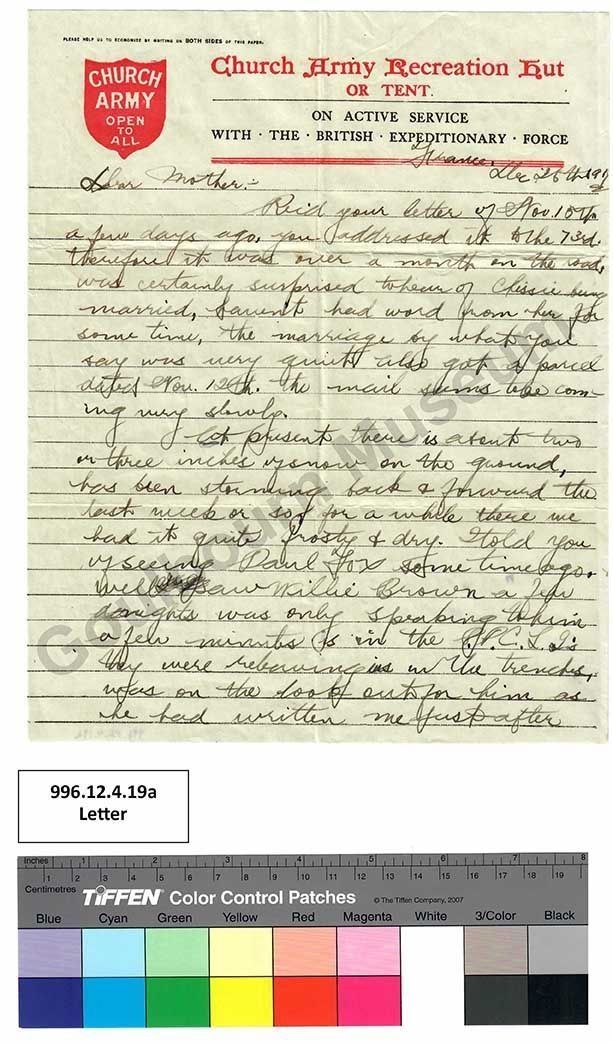 PLEASE HELP US TO ECONOMIZE BY WRITING ON BOTH SIDES OF THIS PAPER.
CHURCH
ARMY
OPEN
TO
ALL
Church Army Recreation Hut
OR TENT.
ON ACTIVE SERVICE
WITH · THE · BRITISH · EXPEDITIONARY · FORCE
France, Dec 26th 191
Dear Mother:-
Rec'd your letter of Nov. 15th
a few days ago, you addressed it to the 73rd.
therefore it was over a month on the road,
was certainly surprised to hear of Chissie being
married, haven't had word from her for
some time, the marriage by what you
say was very quiet. also got a parcel
dated Nov. 12th. the mail seems to be com-
ing very slowly.
At present there is about two
or three inches of snow on the ground,
has been storming back & forward the
last week or so, for a while there we
had it quite frosty & dry. I told you
of seeing Paul Fox some time ago.
well saw Willie Brown a few
nights was only speaking to him
a few minutes is in the P.P.C.L.I's
they were relieving us in the trenches,
was on the look out for him as
he had written me just after
Goulbourn Museum
996.12.4.19a
Letter
Inches 1 2 3 4 5 6 7 8
Centimetres 1 2 3 4 5 6 7 8 9 10 11 12 13 14 15 16 17 18 19
TIFFEN Color Control Patches © The Tiffen Company, 2007
Blue Cyan Green Yellow Red Magenta White 3/Color Black